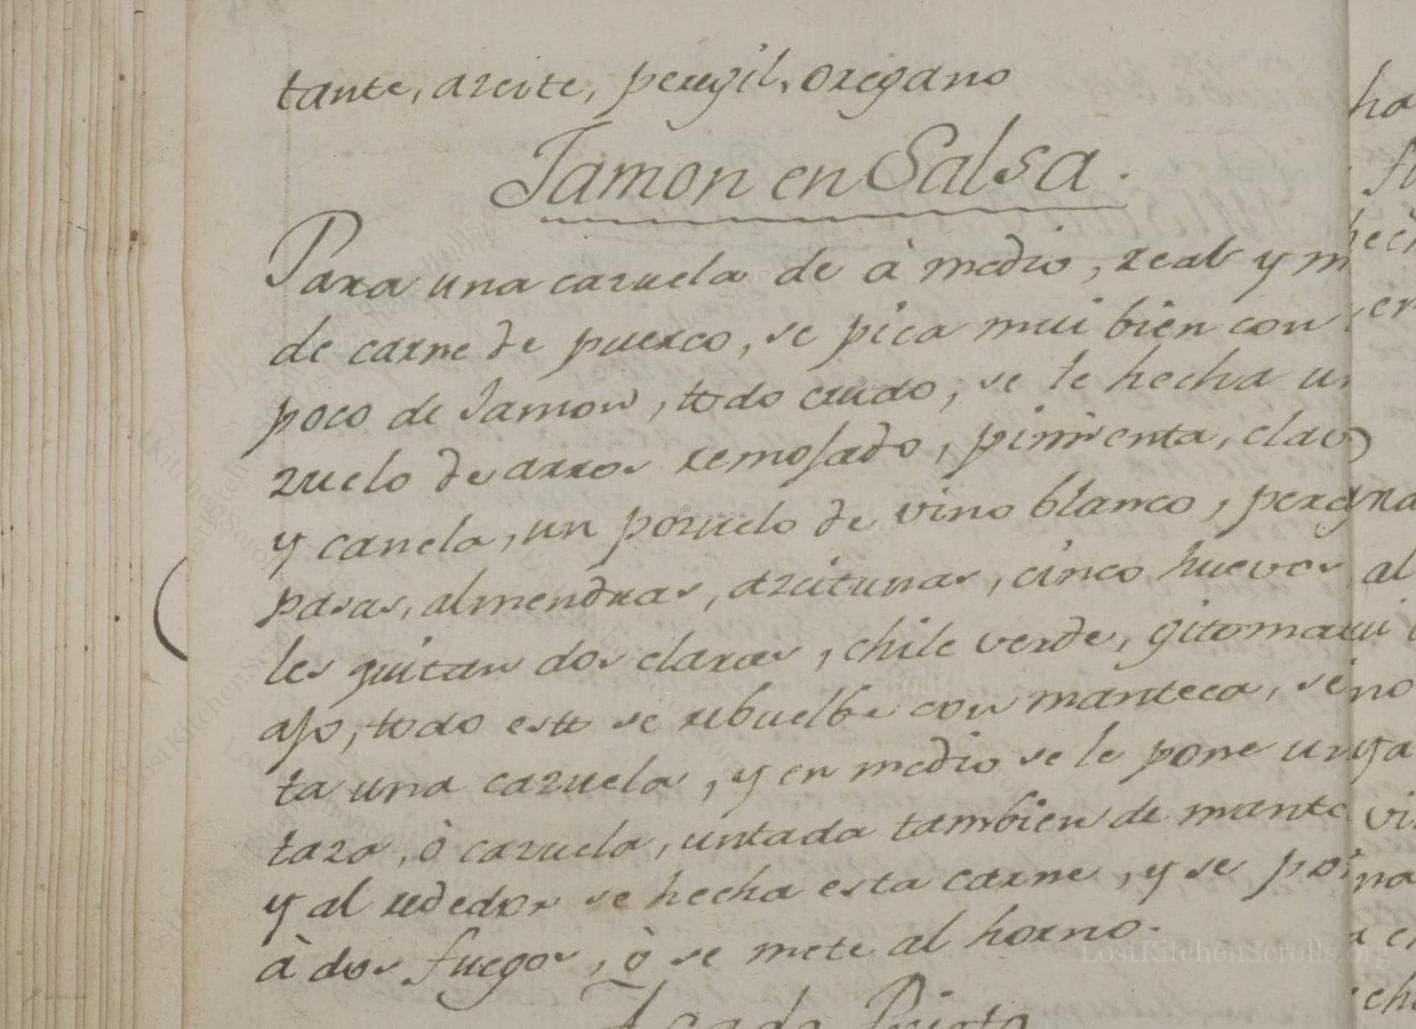 tante, azeite, peregil, oregano
Jamon en Salsa.
Para una cazuela de à medio, real y m
de carne de puerco, se pica mui bien con
poco de Jamon, todo crudo, se le hecha un
zuelo de arros remojado, pimienta, clavo
y canela, un pozuelo de vino blanco, pereg
pasas, almendras, azeitunas, cinco huevos
les quitan dos claras, chile verde, gitomat
ajo, todo esto se rebuelbe con manteca, se
ta una cazuela, y en medio se le pone un
taza, ò cazuela, untada tambien de mante
y al rededor se hecha esta carne, y se po
à dos fuegos, ò se mete al horno.
Prieto
LostKitchenScrolls.org